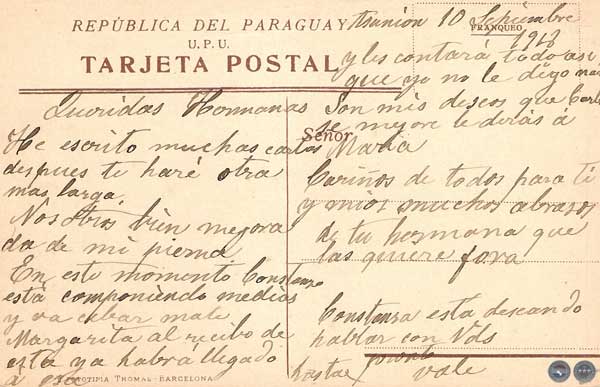 REPÚBLICA DEL PARAGUAY
U.P.U.
TARJETA POSTAL
Asunción 10 Septiembre
FRANQUEO
Señor
Queridas Hermanas
He escrito muchas cartas
despues te haré otra
mas larga.
Nosotros bien mejora
da de mi pierna.
En este momento Constanza
está componiendo medias
y va cebar mate
Margarita al recibo de
esta ya habra llegado
FOTOTIPIA THOMAS-BARCELONA
y les contará todo asi
que yo no le digo nada
Son mis deseos que
se mejore le derás a
Maria
Cariños de todos para ti
y mios muchos abrazos
de tu hermana que
las quiere
Constanza esta deseando
hablar con Vds
hasta pronto
vale